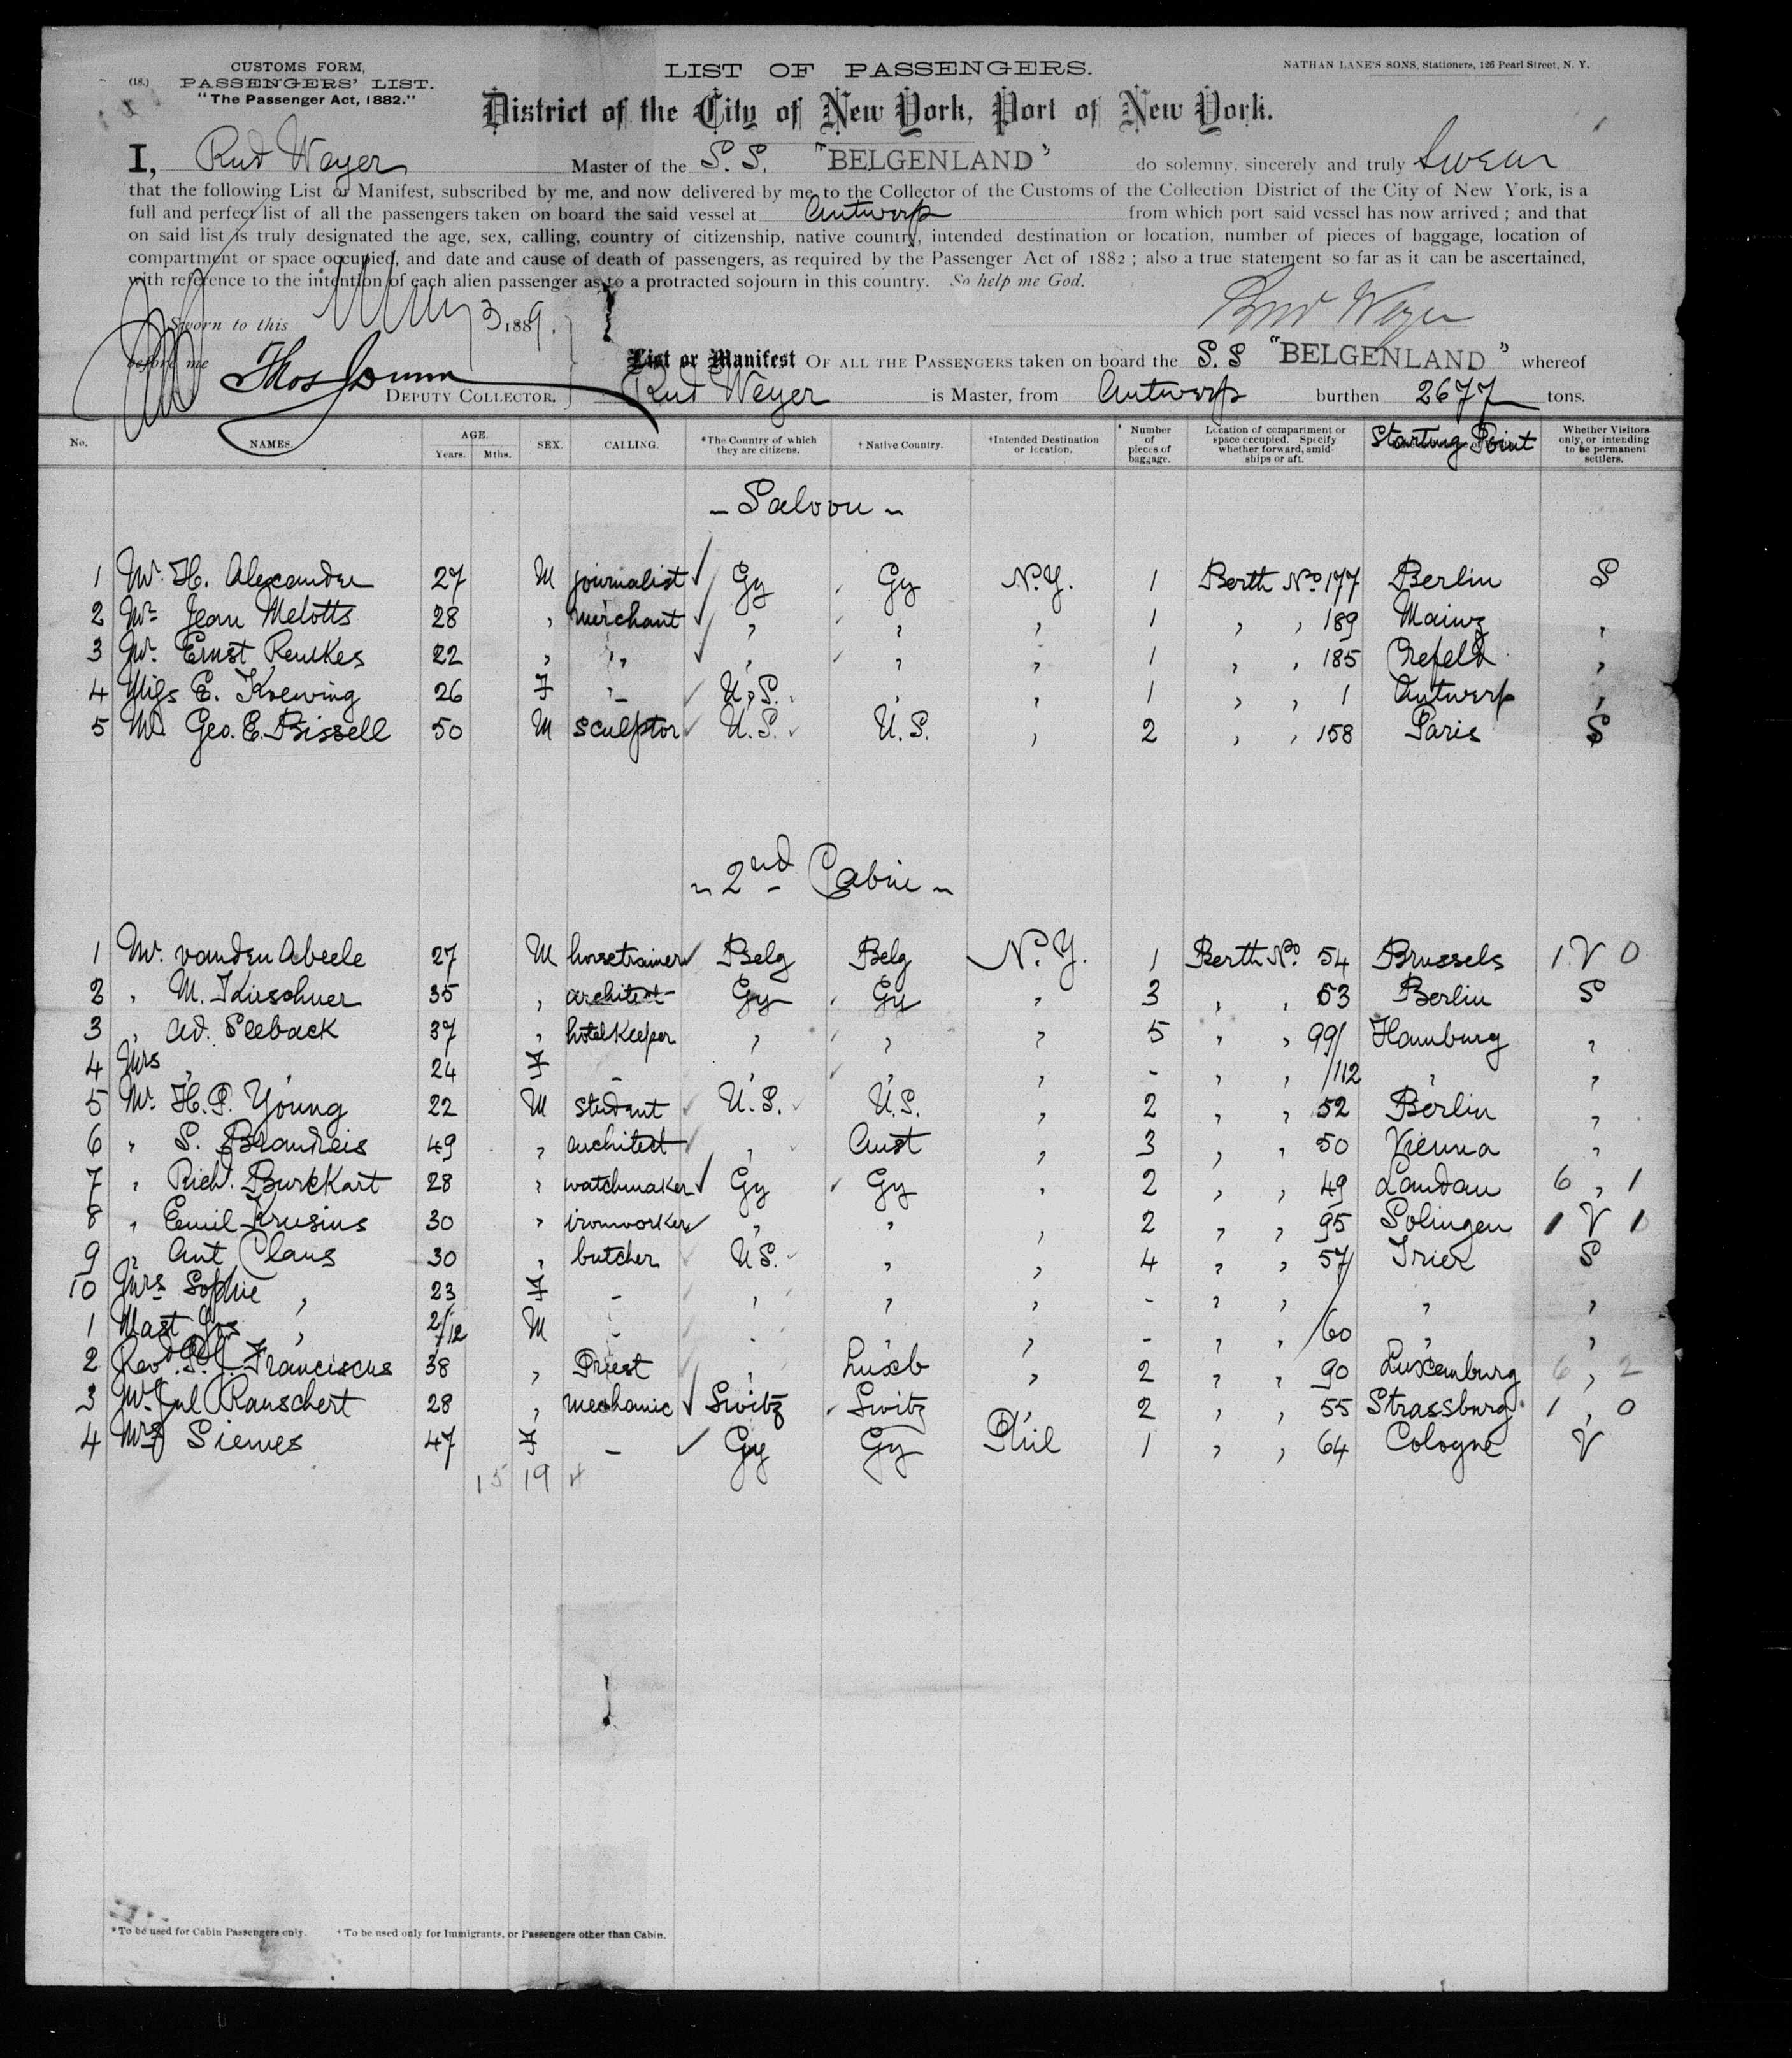 (18.)
CUSTOMS FORM,
PASSENGERS' LIST.
"The Passenger Act, 1882."
LIST OF PASSENGERS.
NATHAN LANE'S SONS, Stationers, 126 Pearl Street, N. Y.
District of the City of New York, Port of New York.
I, Rud Weyer Master of the S. S. "BELGENLAND" do solemny, sincerely and truly swear
that the following List or Manifest, subscribed by me, and now delivered by me to the Collector of the Customs of the Collection District of the City of New York, is a
full and perfect list of all the passengers taken on board the said vessel at Antwerp from which port said vessel has now arrived ; and that
on said list is truly designated the age, sex, calling, country of citizenship, native country, intended destination or location, number of pieces of baggage, location of
compartment or space occupied, and date and cause of death of passengers, as required by the Passenger Act of 1882 ; also a true statement so far as it can be ascertained,
with reference to the intention of each alien passenger as to a protracted sojourn in this country. So help me God.
Sworn to this May 3 1889.
Rud Weyer
before me Thos Dunn
DEPUTY COLLECTOR.
List or Manifest OF ALL THE PASSENGERS taken on board the S. S "BELGENLAND" whereof
Rud Weyer is Master, from Antwerp burthen 2677 tons.
No. NAMES. AGE. Years. Mths. SEX. CALLING. *The Country of which they are citizens. † Native Country. †Intended Destination or location. Number of pieces of baggage. Location of compartment or space occupied. Specify whether forward, amidships or aft. Starting Point Whether Visitors only, or intending to be permanent settlers.
- Saloon -
1 Mr. H. Alexander 27 M journalist Gy Gy N.Y. 1 Berth No 177 Berlin S
2 Mr Jean Melotts 28 , merchant , , , 1 , , 189 Mainz ,
3 Mr. Ernst Renkes 22 , , , , , 1 , , 185 Crefeld ,
4 Miss E. Koewing 26 F - U.S. , , 1 , , 1 Antwerp ,
5 Mr Geo. E. Bissell 50 M sculptor U.S. U.S. , 2 , , 158 Paris S
- 2nd Cabin -
1 Mr. vanden Abeele 27 M horsetrainer Belg Belg N.Y. 1 Berth No 54 Brussels 1 V 0
2 , M. Kirschner 35 , architect Gy Gy , 3 , , 53 Berlin S
3 , Ad. Seeback 37 , hotelkeeper , , , 5 , , 99/ Hamburg ,
4 Mrs , , 24 F - , , , - , , /112 , ,
5 Mr. H. P. Young 22 M student U.S. U.S. , 2 , , 52 Berlin ,
6 , S. Brandeis 49 , architect , Aust , 3 , , 50 Vienna ,
7 , Rich. Burckart 28 , watchmaker Gy Gy , 2 , , 49 Landau 6 , 1
8 , Emil Krusius 30 , ironworker , , , 2 , , 95 Solingen 1 V 1
9 , Ant Claus 30 , butcher U.S. , , 4 , , 57/ Trier S
10 Mrs Sophie , 23 F - , , , - , , / , ,
1 Mast , 2/12 M - , , , - , , /60 , ,
2 Revd Franciscus 38 , Priest , Luxb , 2 , , 90 Luxemburg 6 , 2
3 Mr Jul Rauschert 28 , mechanic Switz Switz , 2 , , 55 Strassburg 1 , 0
4 Mrs Siemes 47 F - Gy Gy Phil 1 , , 64 Cologne V
15 19
*To be used for Cabin Passengers only. † To be used only for Immigrants, or Passengers other than Cabin.